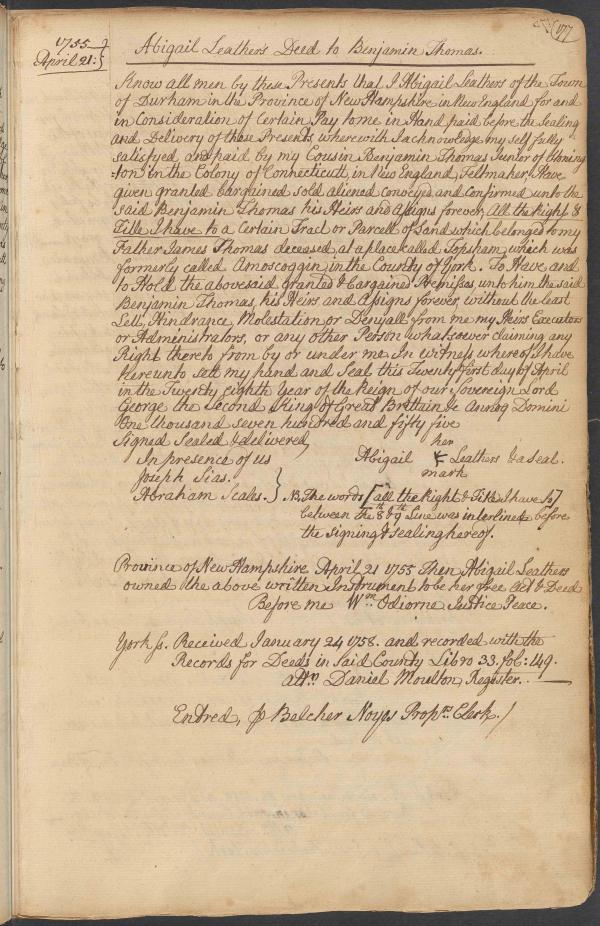 177
1755
April 21:
Abigail Leathers Deed to Benjamin Thomas.
Know all men by these Presents that I Abigail Leathers of the Town
of Durham in the Province of New Hampshire in New England for and
in Consideration of Certain Pay to me in Hand paid before the Sealing
and Delivery of these Presents, wherewith I acknowledge my self fully
satisfyed and paid by my Cousin Benjamin Thomas Junior of Stoning
=ton in the Colony of Connecticutt, in New England, Feltmaker, Have
given granted bargained sold aliened conveyed and confirmed unto the
said Benjamin Thomas his Heirs and Assigns forever, All the Right &
Title I have to a Certain Tract or Parcell of Land which belonged to my
Father James Thomas deceased at a place called Topsham, which was
formerly called Amoscoggin, in the County of York. To Have and
to Hold the abovesaid granted & bargained Premisses, unto him the said
Benjamin Thomas, his Heirs and Assigns forever, without the least
Lett, Hindrance, Molestation or Denyall from me my Heirs Executors
or Administrators, or any other Person whatsoever claiming any
Right thereto from by or under me. In witness whereof I have
hereunto sett my hand and Seal this Twenty first day of April
in the Twenty eighth Year of the Reign of our Sovereign Lord
George the Second King of Great Brittain &c Annoq Domini
One thousand seven hundred and fifty five
Signed Sealed & delivered, her
In presence of us Abigail Leathers & a Seal.
Joseph Sias. mark
Abraham Scales. } NB. The words [all the Right & Title I have to]
between the 8th & 9th Line was interlined before
the signing & sealing hereof.
Province of New Hampshire April 21 1755 Then Abigail Leathers
owned the above written Instrument to be her free Act & Deed
Before me Wm Odiorne Justice Peace.
York ss. Received January 24 1758. and recorded with the
Records for Deeds in said County Libro 33. fol: 149.
attr Daniel Moulton, Register.
Entred, p Belcher Noyes Proprs Clerk.